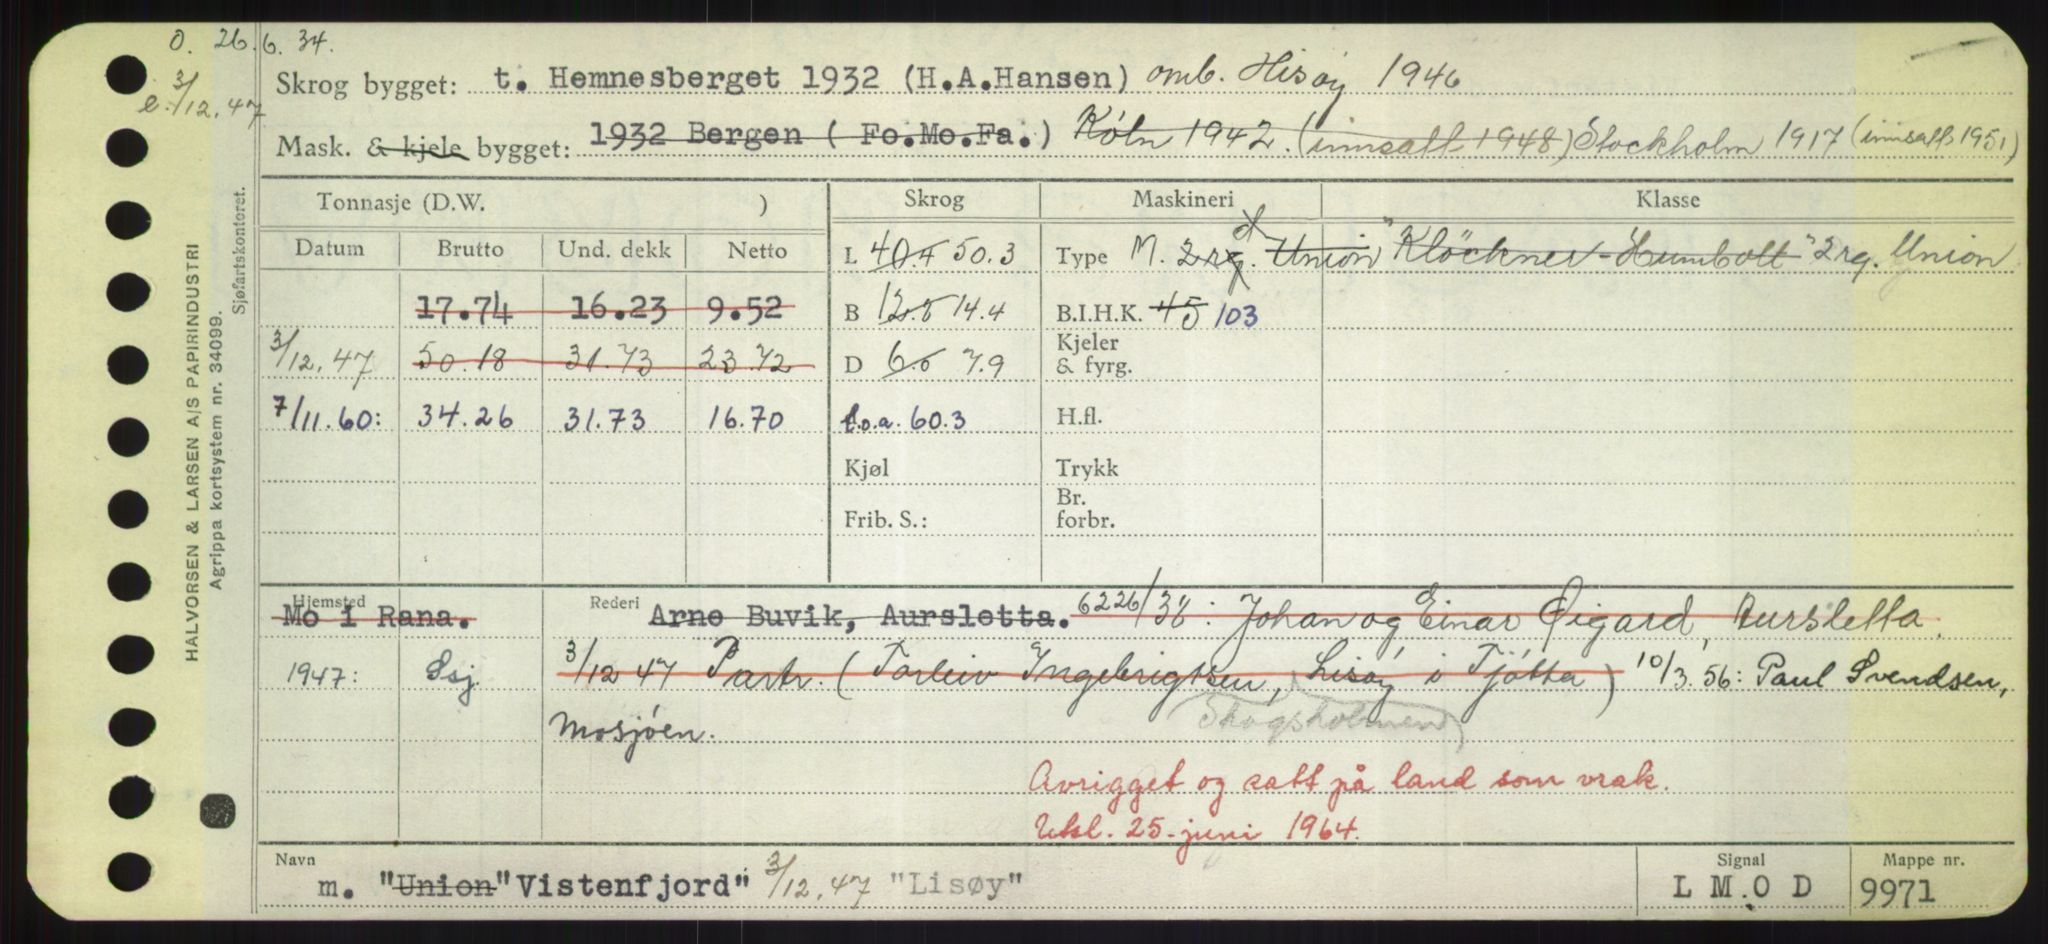 O. 26.6.34.
e. 3/12.47
Skrog bygget: t. Hemnesberget 1932 (H.A.Hansen) omb. Hisøy 1946
Mask. & kjele bygget: 1932 Bergen ( Fo.Mo.Fa.) Köln 1942. (innsatt 1948) Stockholm 1917 (innsatt 1951)
HALVORSEN & LARSEN A/S PAPIRINDUSTRI
Agrippa kortsystem nr. 34099.
Sjøfartskontoret.
Tonnasje (D.W. ) Skrog Maskineri Klasse
Datum Brutto Und. dekk Netto L 40.4 50.3 Type M. 2 rg. d Union "Klöckner-Humbolt" 2 rg. Union
17.74 16.23 9.52 B 12.0 14.4 B.I.H.K. 45 103
3/12.47 50.18 31.73 23.72 D 6.0 7.9 Kjeler & fyrg.
7/11.60: 34.26 31.73 16.70 L.o.a. 60.3 H.fl.
Kjøl Trykk
Frib. S.: Br. forbr.
Hjemsted Rederi
Mo i Rana. Arne Buvik, Aursletta. 6226/38: Johan og Einar Øigard, Aursletta.
1947: Ssj. 3/12 47 Partr. (Torleiv Ingebrigtsen, Lisøy i Tjøtta) 10/3.56: Paul Svendsen,
Mosjøen. Skogsholmen
Avrigget og satt på land som vrak.
Utsl. 25. juni 1964.
Navn Signal Mappe nr.
m. "Union" Vistenfjord" 3/12.47 "Lisøy" L M O D 9971